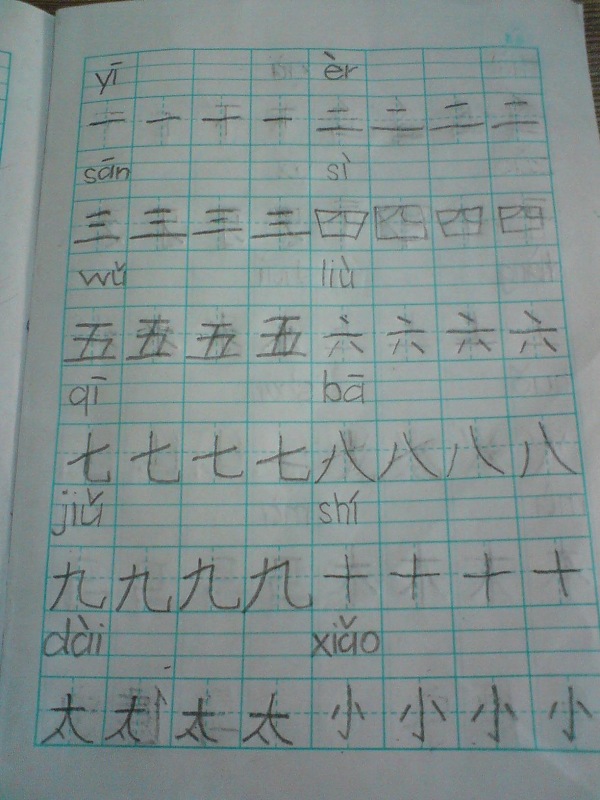 yī èr
一 一 一 一 二 二 二 二
sān sì
三 三 三 三 四 四 四 四
wǔ liù
五 五 五 五 六 六 六 六
qī bā
七 七 七 七 八 八 八 八
jiǔ shí
九 九 九 九 十 十 十 十
dài xiǎo
太 太 太 太 小 小 小 小